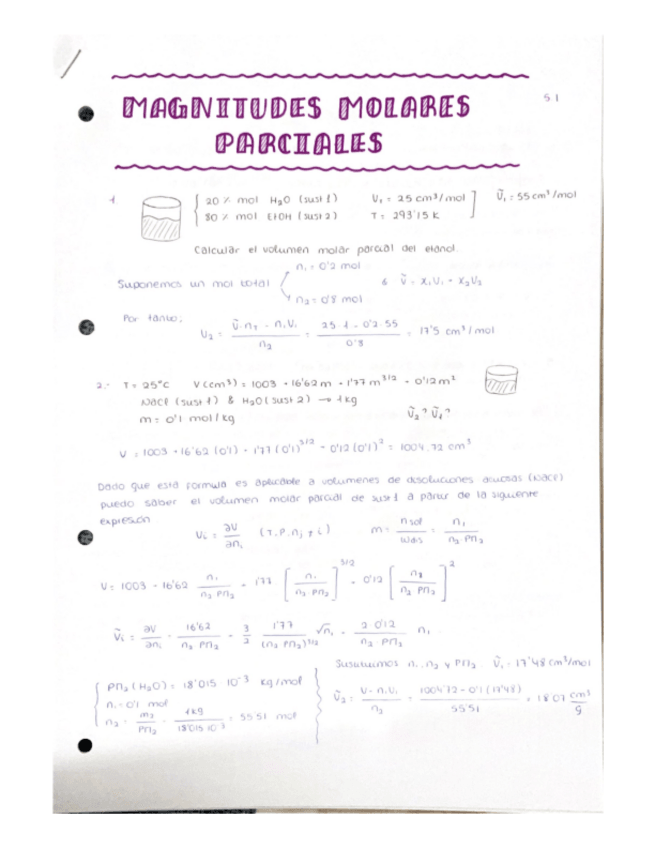 51
MAGNITUDES MOLARES
PARCIALES
1 20 % mol H₂O (sust 1) V₁ = 25 cm³/mol Ṽ₁ = 55 cm³/mol
80 % mol EtOH (sust 2) T = 293'15 K
Calcular el volumen molar parcial del etanol.
n₁ = 0'2 mol
Suponemos un mol total & Ṽ = x₁V₁ + x₂V₂
n₂ = 0'8 mol
Por tanto;
V₂ = (Ṽ·n_T - n₁V₁)/n₂ = (25·1 - 0'2·55)/0'8 = 17'5 cm³/mol
2.- T = 25°C V(cm³) = 1003 + 16'62 m + 1'77 m^3/2 + 0'12 m²
NaCl (sust 1) & H₂O (sust 2) → 1 kg
m = 0'1 mol/kg Ṽ₂? Ṽ₁?
V = 1003 + 16'62 (0'1) + 1'77 (0'1)^3/2 + 0'12 (0'1)² = 1004,72 cm³
Dado que esta formula es aplicable a volumenes de disoluciones acuosas (NaCl)
puedo saber el volumen molar parcial de sust 1 a partir de la siguiente
expresión
Vi = ∂V/∂ni (T, P, nj ≠ i) m = n sol/Wdis = n₁/(n₂·PM₂)
V = 1003 + 16'62 n₁/(n₂ PM₂) + 1'77 [n₁/(n₂·PM₂)]^3/2 + 0'12 [n₁/(n₂ PM₂)]²
Ṽi = ∂V/∂ni = 16'62/(n₂ PM₂) + 3/2 1'77/(n₂ PM₂)^3/2 √n₁ + 2·0'12/(n₂ PM₂) n₁
Sustituimos n₁, n₂ y PM₂. Ṽ₁ = 17'48 cm³/mol
PM₂ (H₂O) = 18'015·10⁻³ kg/mol
n₁ = 0'1 mol
Ṽ₂ = (V - n₁V₁)/n₂ = (1004'72 - 0'1 (17'48))/55'51 = 18'07 cm³/g
n₂ = m₂/PM₂ = 1kg/18'015·10⁻³ = 55'51 mol